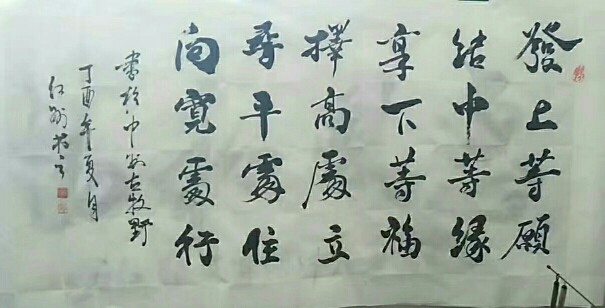 發上等願
結中等緣
享下等福
擇高處立
尋平處住
向寬處行
書於中州古牧野
丁酉年夏月